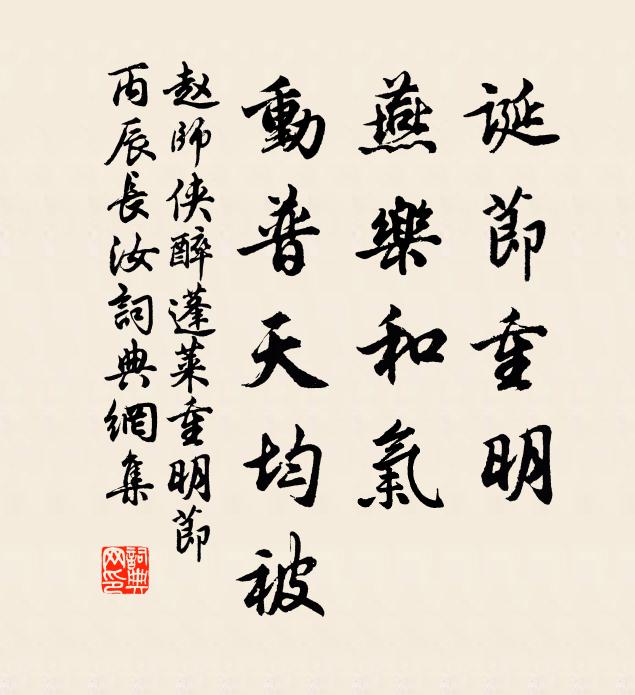 誕節重明
燕樂和氣
動普天均被
赵師侠醉蓬萊重明節
丙辰長汝詞典網集
詞典网印